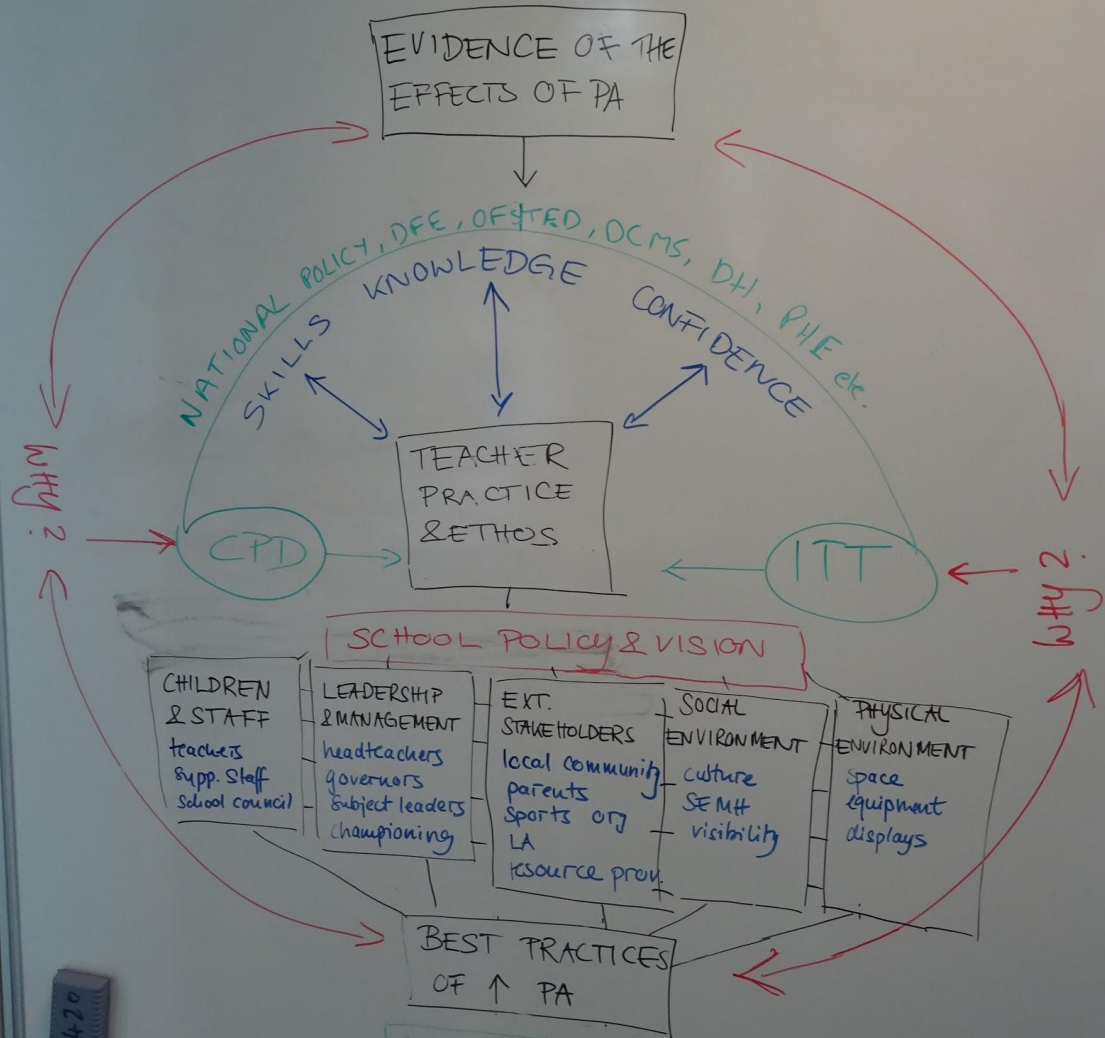 EVIDENCE OF THE
EFFECTS OF PA
NATIONAL POLICY, DFE, OFSTED, DCMS, DH, PHE etc.
SKILLS
KNOWLEDGE
CONFIDENCE
TEACHER
PRACTICE
& ETHOS
WHY?
CPD
ITT
WHY?
SCHOOL POLICY & VISION
CHILDREN
& STAFF
teachers
supp. staff
school council
LEADERSHIP
& MANAGEMENT
headteachers
governors
subject leaders
championing
EXT.
STAKEHOLDERS
local community
parents
sports org
LA
resource prov.
SOCIAL
ENVIRONMENT
culture
SEMH
visibility
PHYSICAL
ENVIRONMENT
space
equipment
displays
BEST PRACTICES
OF ↑ PA
420